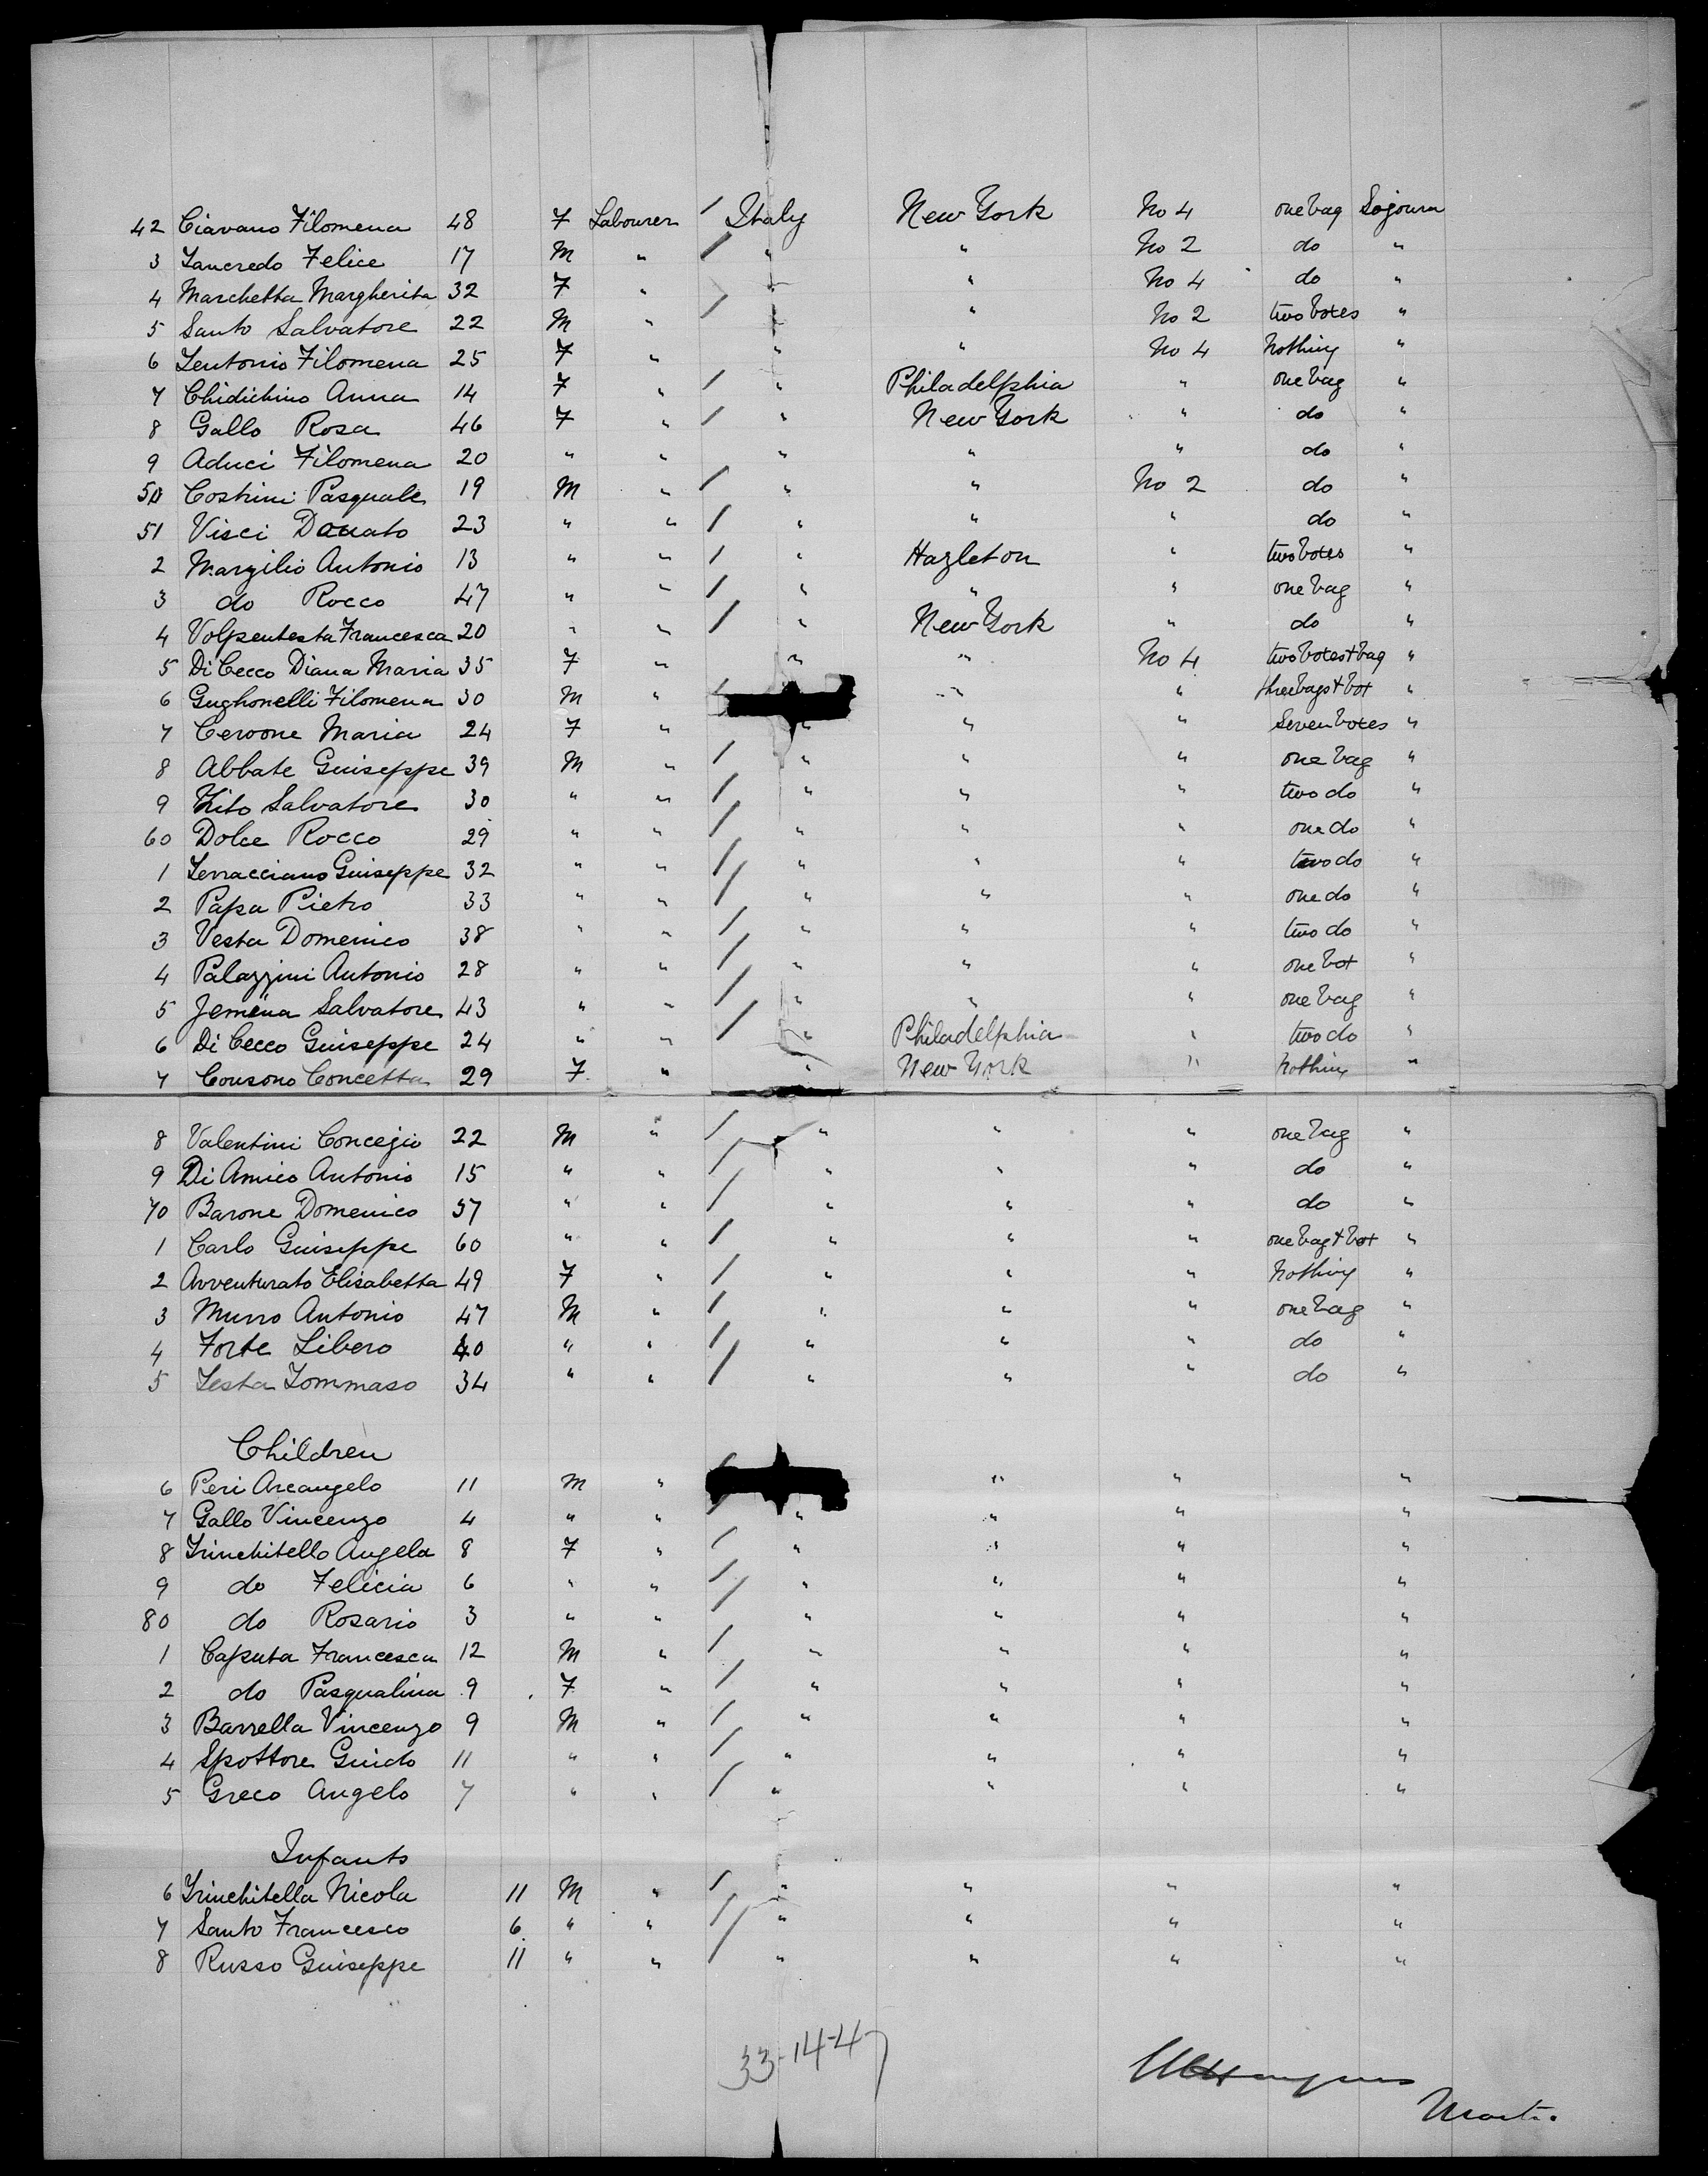 42 Ciavano Filomena 48 F Labourer / Italy New York No 4 one bag Sojourn
3 Tancredo Felice 17 M " / " " No 2 do "
4 Marchetta Margherita 32 F " " " No 4 do "
5 Santo Salvatore 22 M " / " No 2 two boxes "
6 Tentonio Filomena 25 F " " " No 4 Nothing "
7 Chidichino Anna 14 F " / " Philadelphia " one bag "
8 Gallo Rosa 46 F " / " New York " do "
9 Aduci Filomena 20 " " " " " do "
50 Costrini Pasquale 19 M " / " " No 2 do "
51 Visci Donato 23 " " / " " " do "
2 Margilio Antonio 13 " " / " Hazleton " two boxes "
3 do Rocco 47 " " / " " " one bag "
4 Volpentesta Francesca 20 " " / " New York " do "
5 Di Cecco Diana Maria 35 F " " " No 4 two boxes + bag "
6 Gughonelli Filomena 30 M " / " " three bags + box "
7 Cervone Maria 24 F " " " " Seven boxes "
8 Abbate Guiseppe 39 M " / " " " one bag "
9 Zito Salvatore 30 " " / " " " two do "
60 Dolce Rocco 29 " " / " " " one do "
1 Terracciano Guiseppe 32 " " / " " " two do "
2 Papa Pietro 33 " " / " " " one do "
3 Vesta Domenico 38 " " / " " " two do "
4 Palazzini Antonio 28 " " / " " " one box "
5 Jemena Salvatore 43 " " / " " " one bag "
6 Di Cecco Guiseppe 24 " " / " Philadelphia " two do "
7 Consono Concetta 29 F " " New York " Nothing "
8 Valentini Concejio 22 M " / " " " one bag "
9 Di Amico Antonio 15 " " / " " " do "
70 Barone Domenico 57 " " / " " " do "
1 Carlo Guiseppe 60 " " / " " " one bag + box "
2 Avventurato Elisabetta 49 F " / " " " Nothing "
3 Murro Antonio 47 M " / " " " one bag "
4 Forte Libero 40 " " / " " " do "
5 Testa Tommaso 34 " " / " " " do "
Children
6 Peri Arcangelo 11 M " / " " "
7 Gallo Vincenzo 4 " " / " " " "
8 Trinchitello Angela 8 F " / " " " "
9 do Felicia 6 " " / " " " "
80 do Rosario 3 " " / " " " "
1 Caputa Francesca 12 M " / " " " "
2 do Pasqualina 9 F " / " " " "
3 Barrella Vincenzo 9 M " / " " " "
4 Spottore Guido 11 " " / " " " "
5 Greco Angelo 7 " " / " " " "
Infants
6 Trinchitella Nicola 11 M " / " " " "
7 Santo Francesco 6 " " / " " " "
8 Russo Guiseppe 11 " " / " " " "
33-14-47